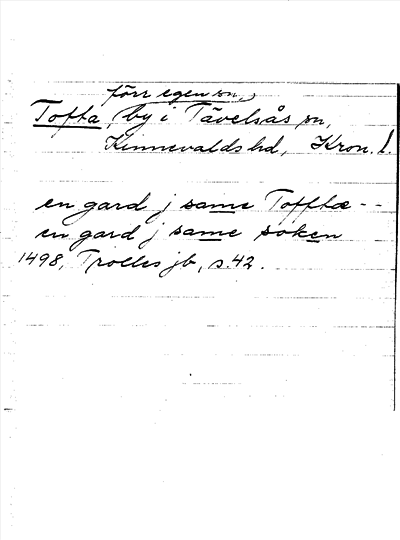 förr egen sn,
Tofta, by i Tävelsås sn,
Kinnevalds hd, Kron. l.
en gard j same Tofftæ - -
en gard j same soken
1498, Trolles jb, s. 42.